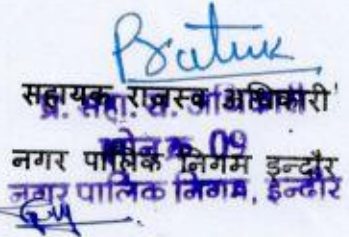 सहायक राजस्व अधिकारी
प्र. सहा. रा. अधिकारी
झोन क्र. 09
नगर पालिक निगम इन्दौर
नगर पालिक निगम, इन्दौर